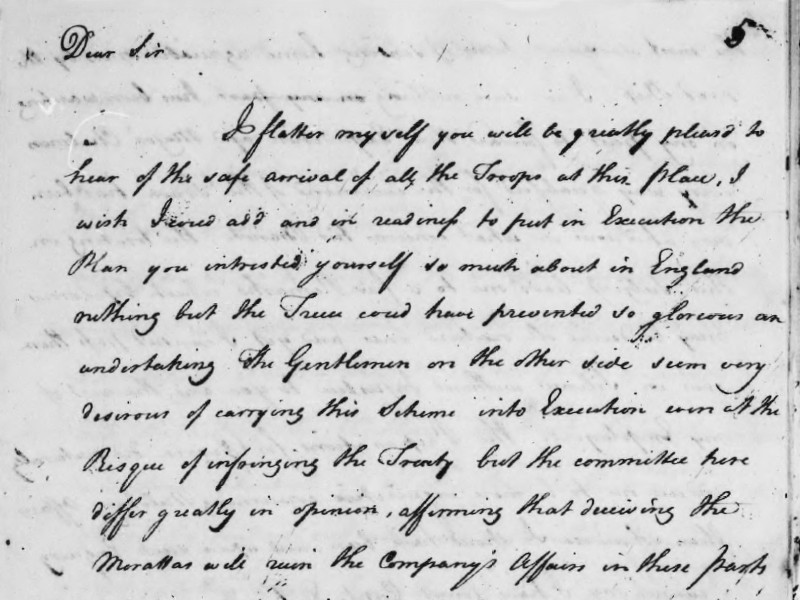 5
Dear Sir
I flatter myself you will be greatly pleasd to
hear of the safe arrival of all the Troops at this Place, I
wish I coud add and in readiness to put in Execution the
Plan you intrested yourself so much about in England
nothing but the Truce coud have prevented so glorious an
undertaking The Gentlemen on the other side seem very
desirous of carrying this Scheme into Execution even at the
Risque of infringing the Treaty but the committee here
differ greatly in opinion, affirming that deceiving the
Morattas will ruin the Company's Affairs in these parts